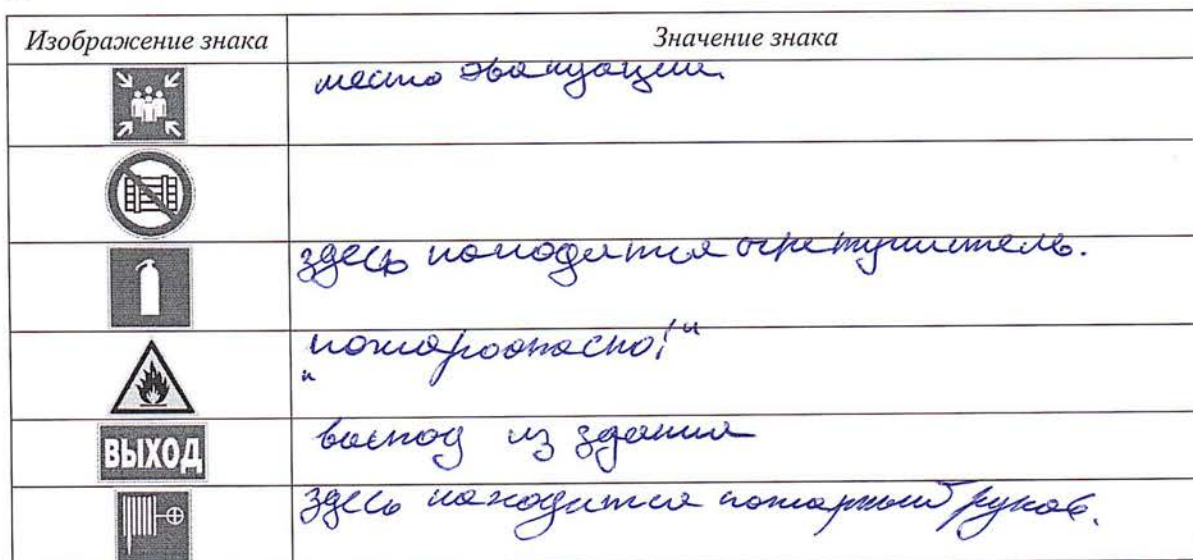 Изображение знака Значение знака
место эвакуации.
здесь находится огнетушитель.
"пожароопасно!"
ВЫХОД выход из здания
здесь находится пожарный рукав.